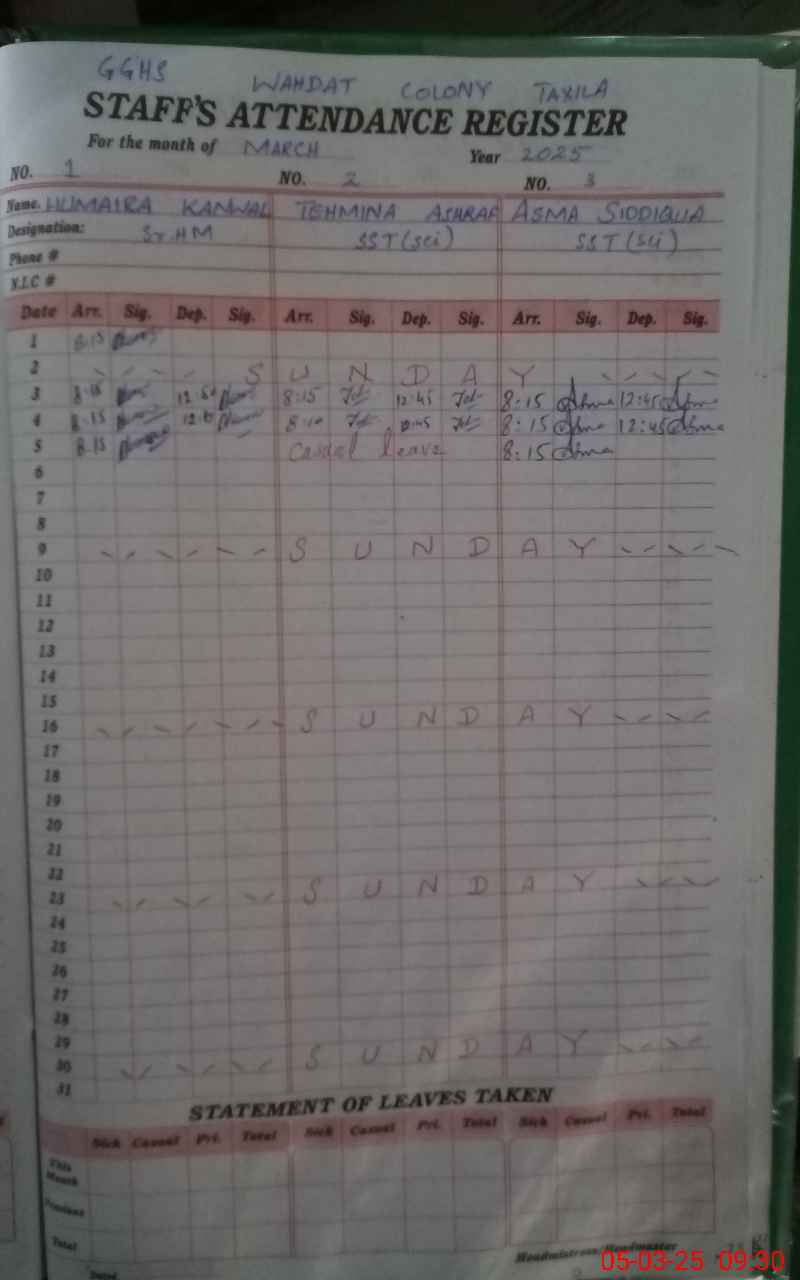 GGHS WAHDAT COLONY TAXILA
STAFF'S ATTENDANCE REGISTER
For the month of MARCH Year 2025
NO. 1 NO. 2 NO. 3
Name. HUMAIRA KANWAL TEHMINA ASHRAF ASMA SIDDIQUA
Designation: Sr.HM SST(Sci) SST(Sci)
Phone #
N.I.C #
Date Arr. Sig. Dep. Sig. Arr. Sig. Dep. Sig. Arr. Sig. Dep. Sig.
1 8:15
2 SUNDAY
3 8:15 12:50 8:15 12:45 8:15 12:45
4 8:15 8:10 8:15 12:45
5 8:15 Casual leave 8:15
6
7
8
9 SUNDAY
10
11
12
13
14
15
16 SUNDAY
17
18
19
20
21
22
23 SUNDAY
24
25
26
27
28
29
30 SUNDAY
31
STATEMENT OF LEAVES TAKEN
Sick Casual Pri. Total Sick Casual Pri. Total Sick Casual Pri. Total
This Month
Previous
Total
Headmistress/Headmaster
05-03-25 09:30